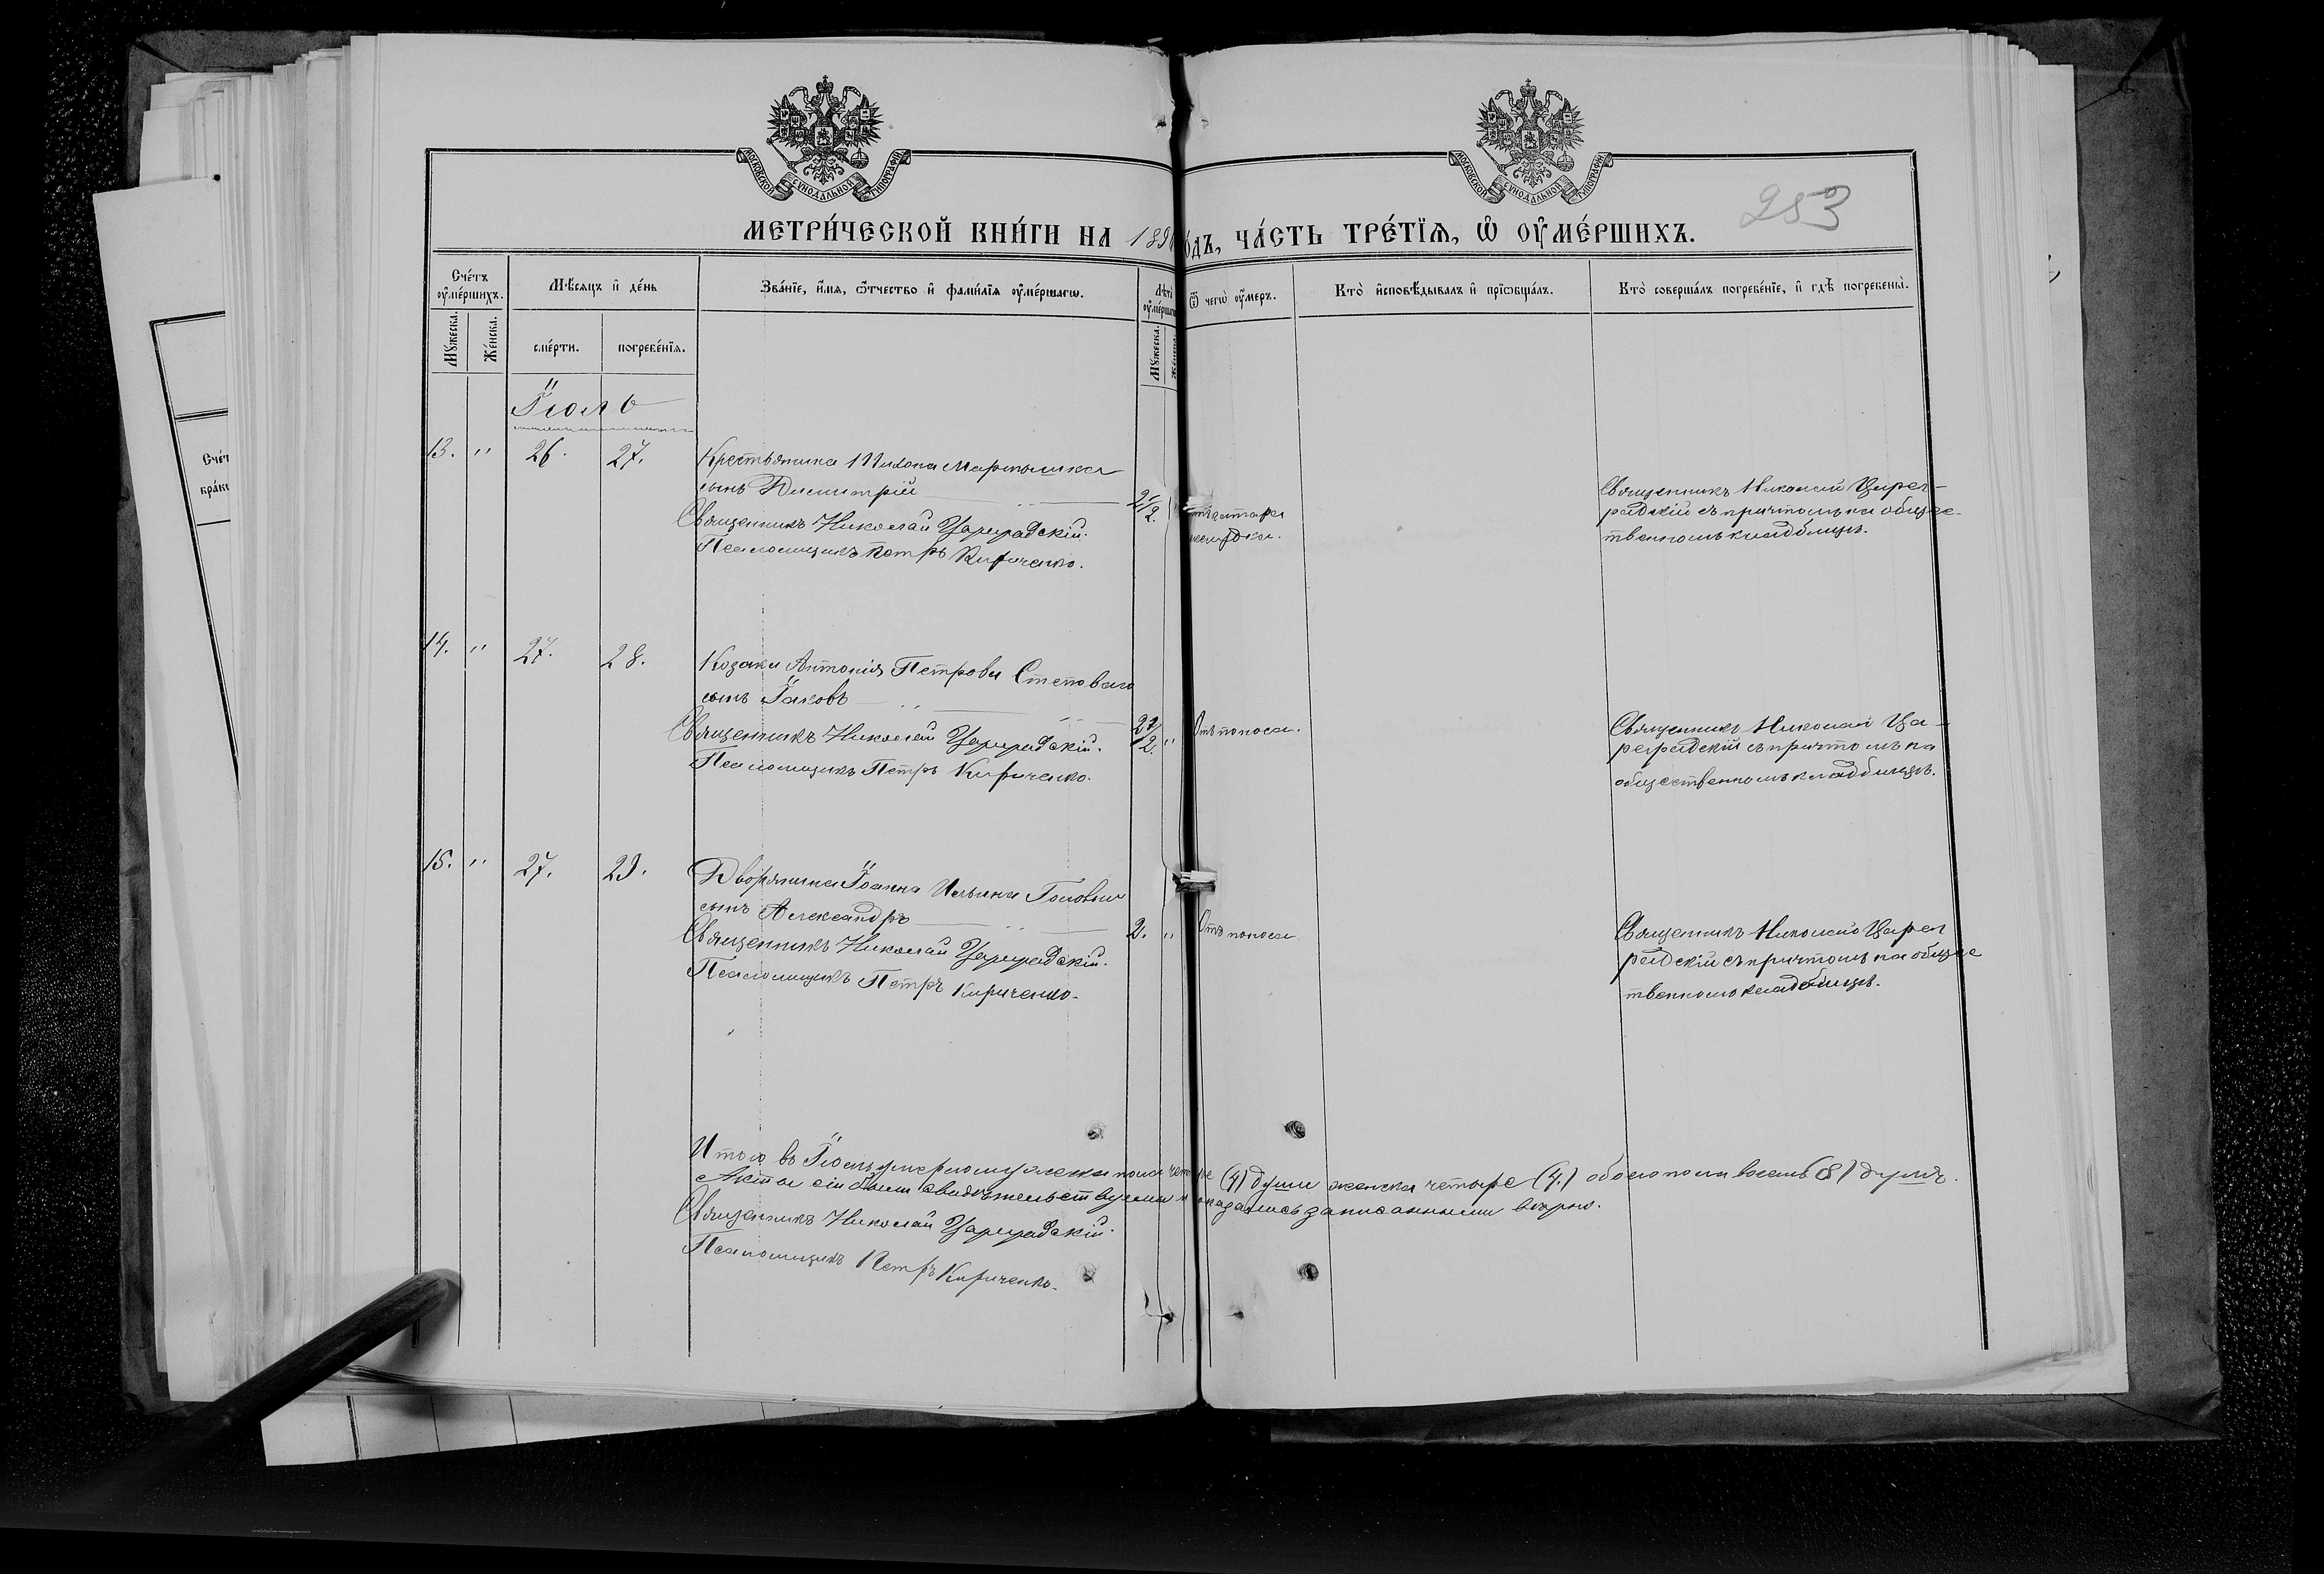 МОСКОВСКОЙ СѴНОДАЛЬНОЙ ТИПОГРАФІИ
МОСКОВСКОЙ СѴНОДАЛЬНОЙ ТИПОГРАФІИ
253
МЕТРИ́ЧЕСКОЙ КНИ́ГИ НА 189 о́дъ, ЧА́СТЬ ТРЕ́ТЇѦ, Ѡ҆ ОУ҆МЕ́РШИХЪ.
Сче́тъ оу҆ме́ршихъ.
Мꙋ́жеска.
Же́нска.
Мѣ́сяцъ и҆ де́нь
сме́рти.
погребе́нїѧ.
Зва́нїе, и҆́мѧ, ѻ҆́тчество и҆ фами́лїѧ оу҆ме́ршагѡ.
Мꙋ́жеска.
Ѿ чегѡ̀ оу҆́меръ.
Кто̀ и҆сповѣ́дывалъ и҆ прїѡбща́лъ.
Кто̀ соверша́лъ погребе́нїе, и҆ гдѣ̀ погребены̀.
Іюль
13. " 26. 27. Крестьянина
сынъ Димитрій
Священникъ Николай Цареградскій.
Псаломщикъ Петръ Кириченко.
Священникъ Николай Царег-
радскій съ причтомъ на общес-
твенномъ кладбищѣ.
14. " 27. 28. Козака Антонія Петрова Степового
сынъ Іаковъ " 2 1/2. " Отъ поноса.
Священникъ Николай Цареградскій.
Псаломщикъ Петръ Кириченко.
Священникъ Николай Ца-
реградскій съ причтомъ на
общественномъ кладбищѣ.
15. " 27. 29. Дворянина Іоанна Ильина
сынъ Александръ 2. " Отъ поноса
Священникъ Николай Цареградскій.
Псаломщикъ Петръ Кириченко.
Священникъ Николай Царег
радскій съ причтомъ на общес
твенномъ кладбищѣ.
Итого въ Іюлѣ умерло мужеска пола четыре (4) души женска четыре (4.) обоего пола восемь (8) душъ.
Акты сіи были свидѣтельствуемы и оказались записанными вѣрно.
Священникъ Николай Цареградскій.
Псаломщикъ Петръ Кириченко.